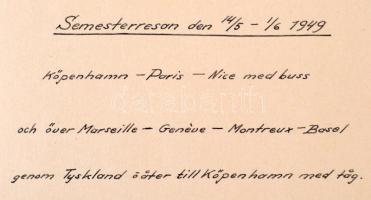 Semesterresan den 14/5 – 1/6 1949
Köpenhamn – Paris – Nice med buss
och över Marseille – Genève – Montreux – Basel
genom Tyskland å åter till Köpenhamn med tåg.